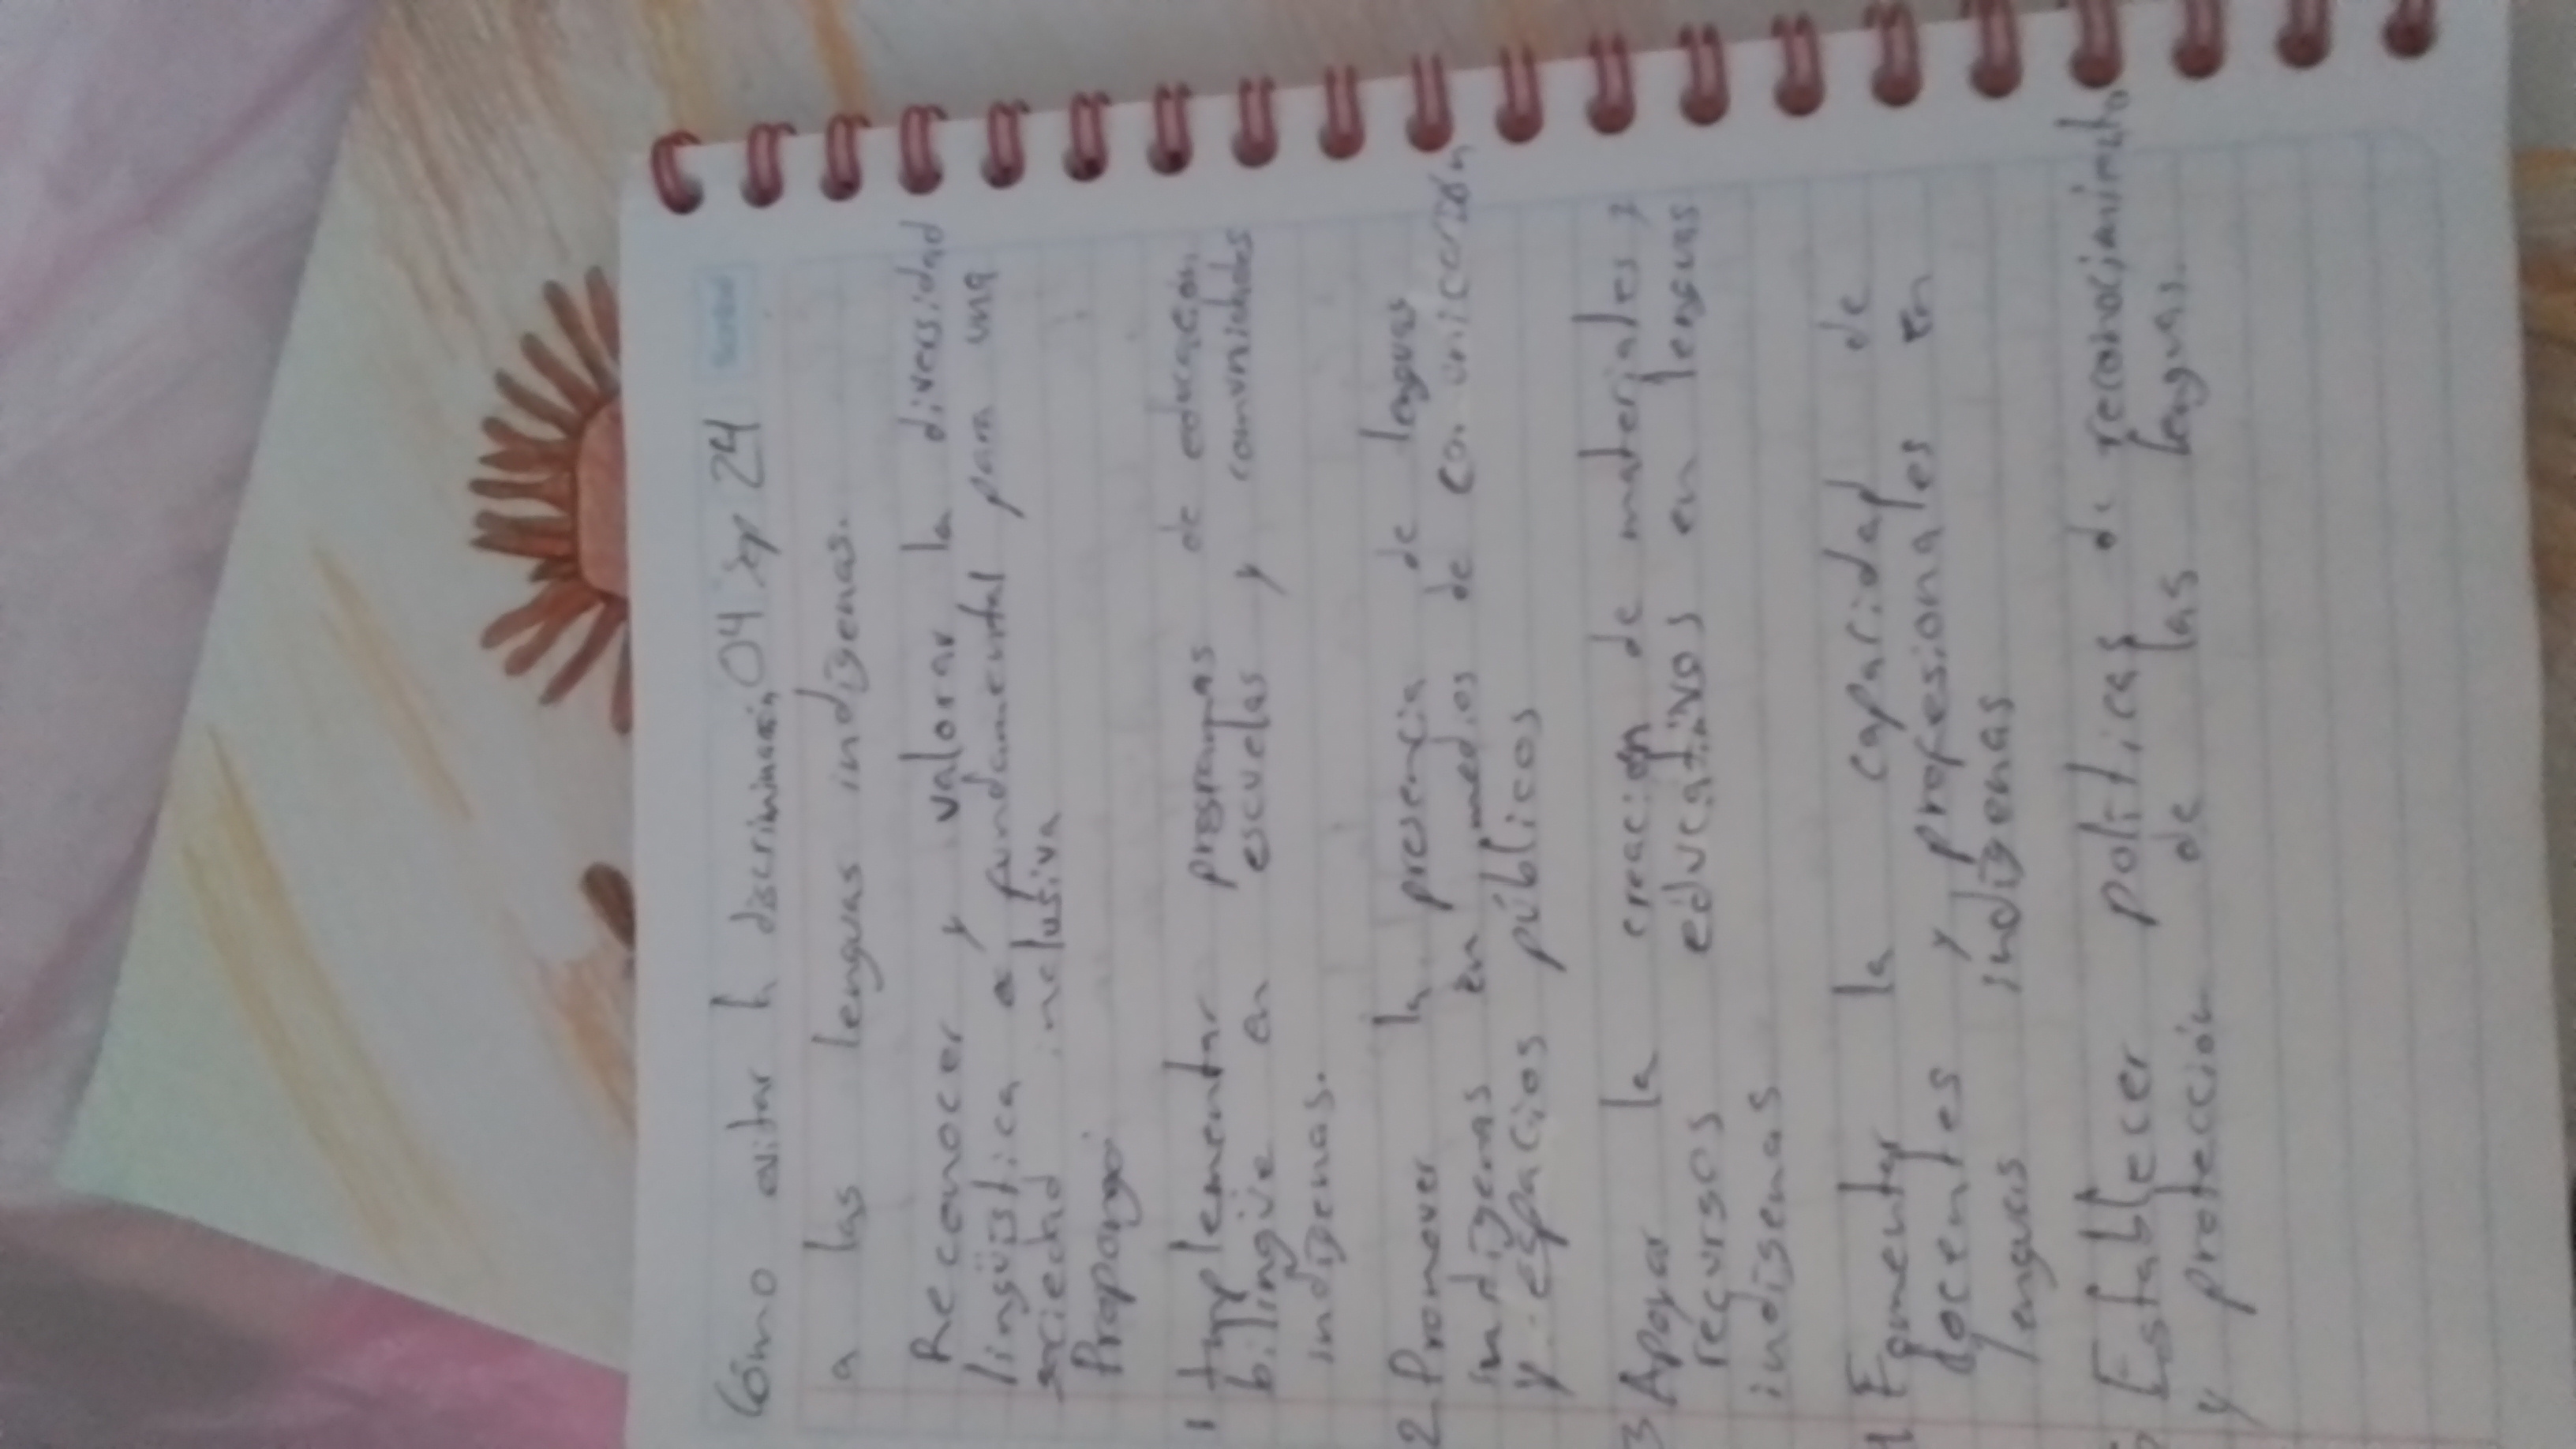 Cómo evitar la discriminación 04 sep 24
a las lenguas indígenas.
Reconocer y valorar la diversidad
lingüística es fundamental para una
sociedad inclusiva
Propongo:
1 Implementar programas de educación
bilingüe en escuelas y comunidades
indígenas.
2 Promover la presencia de lenguas
indígenas en medios de comunicación
y espacios públicos
3 Apoyar la creación de materiales y
recursos educativos en lenguas
indígenas
4 Fomentar la caparidad de
docentes y profesionales en
lenguas indígenas
5 Establecer políticas de reconocimiento
y protección de las lenguas.